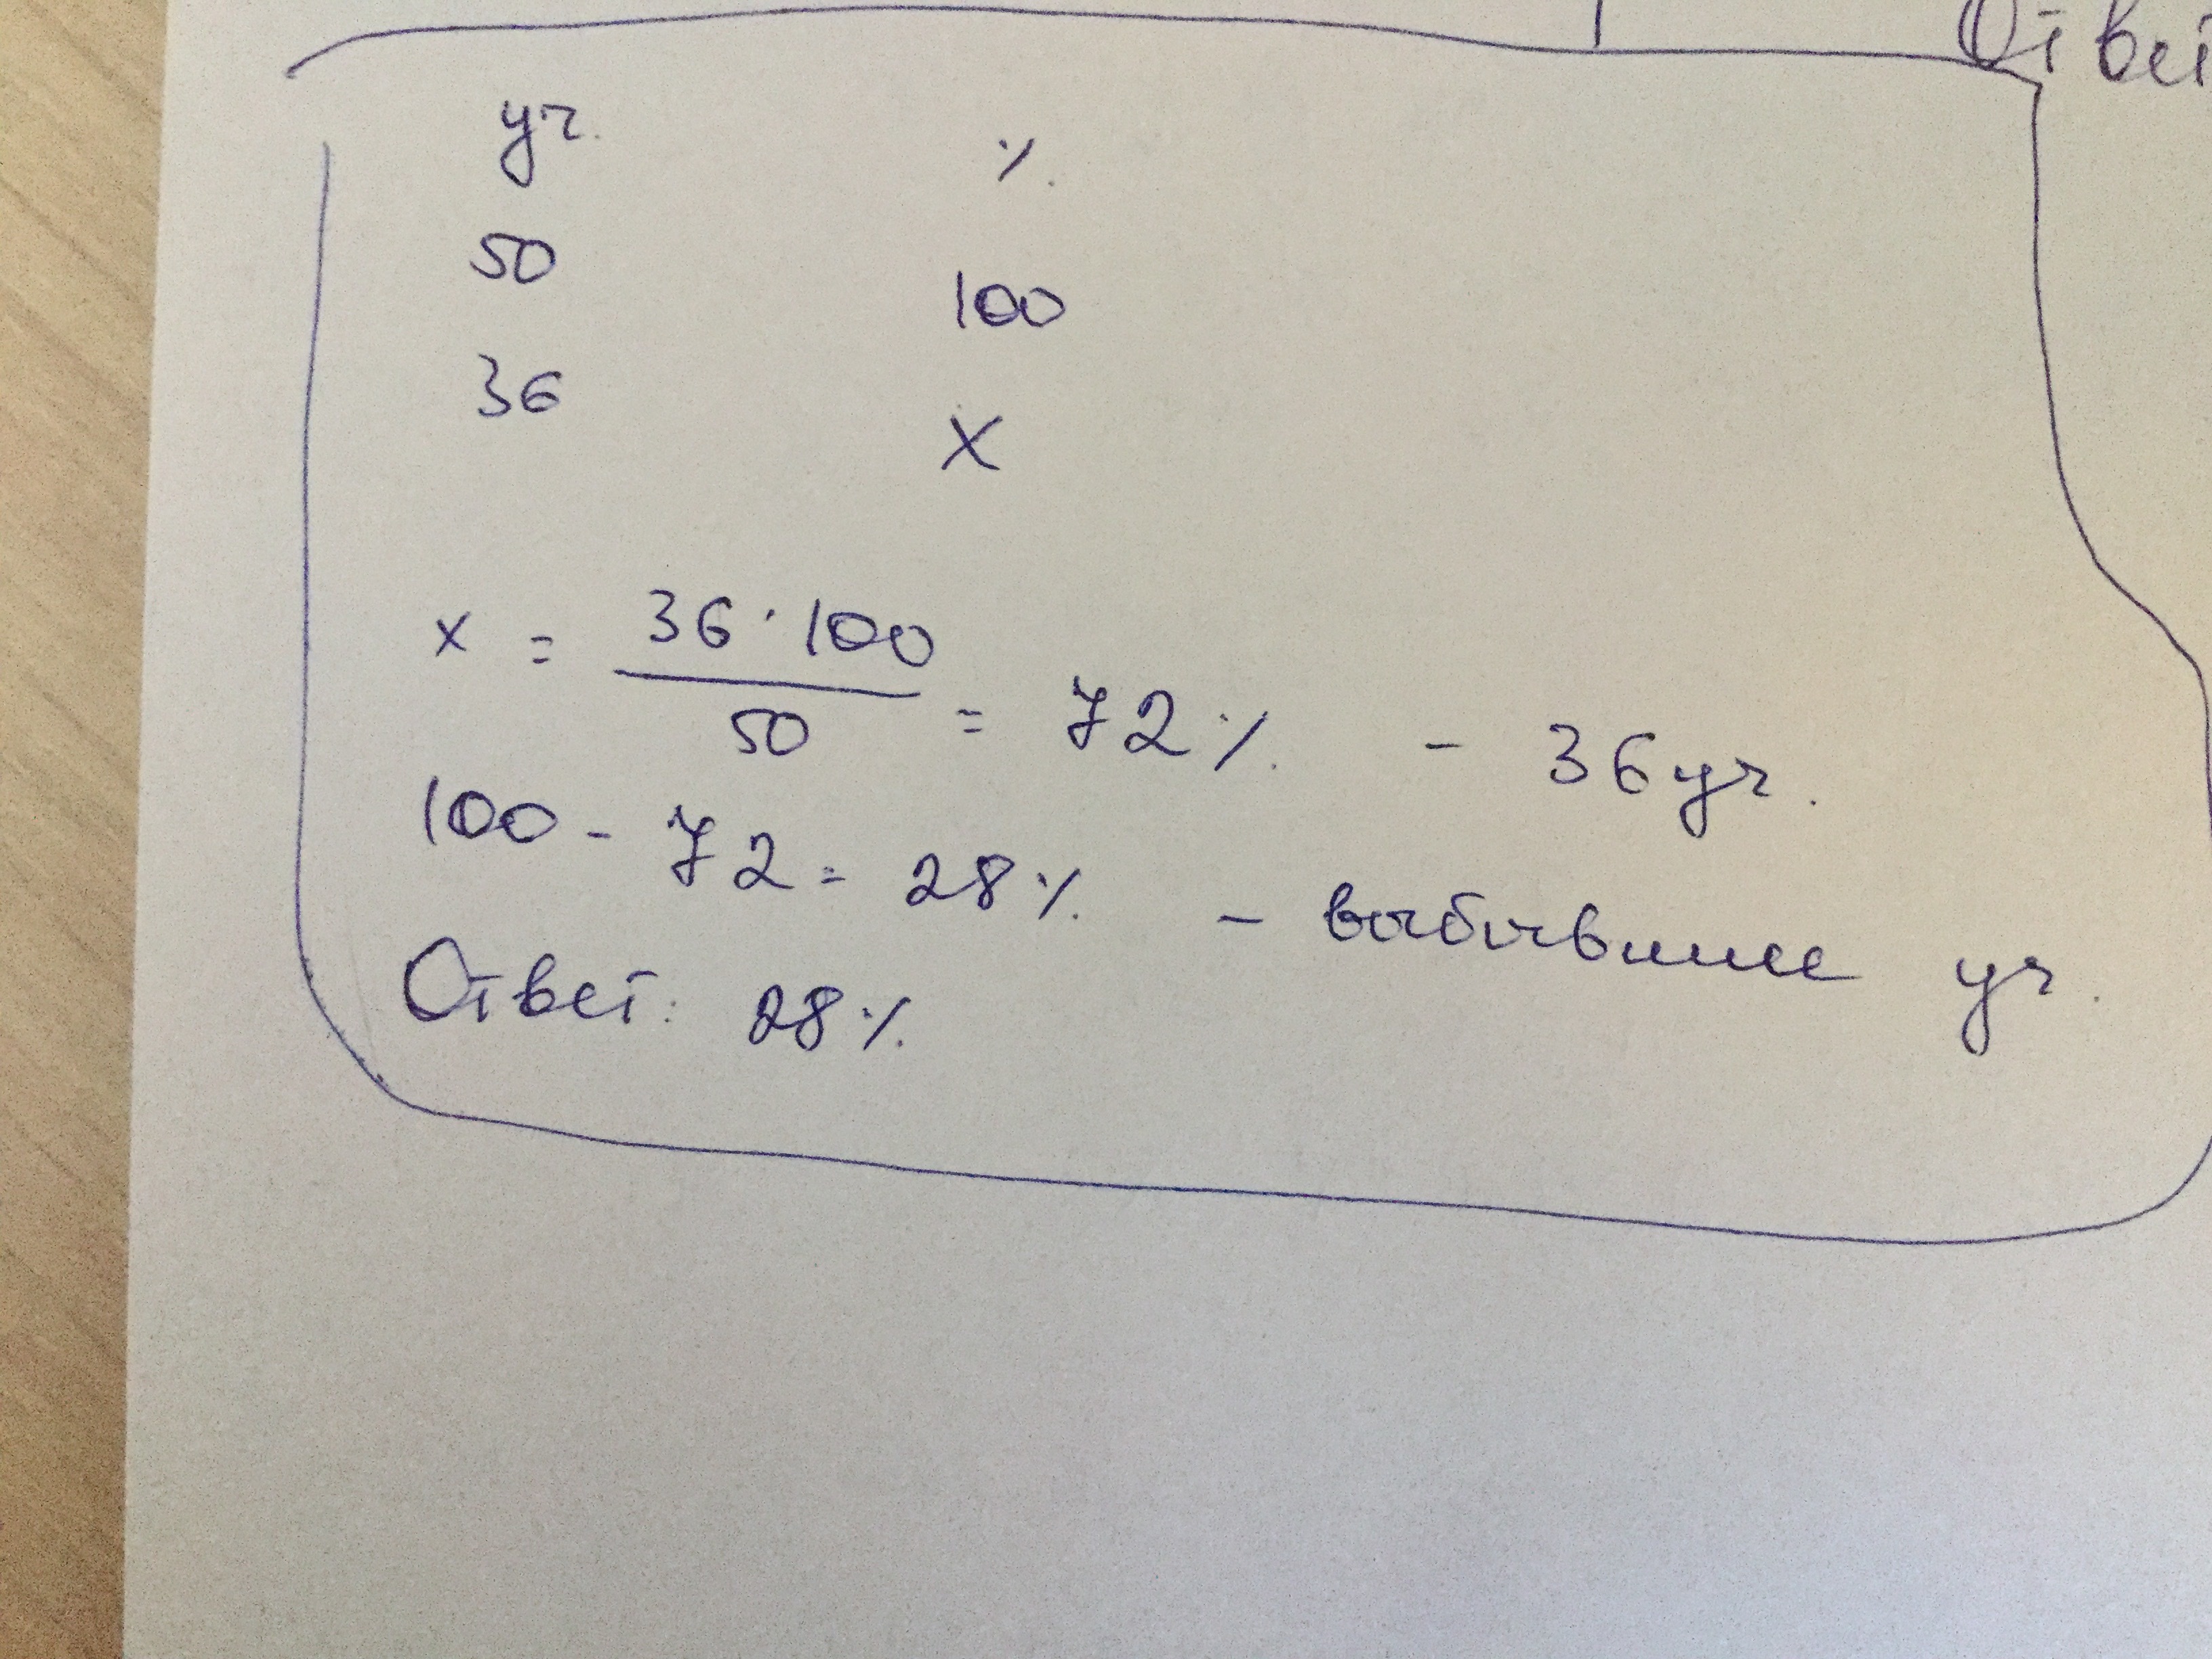 Ответ
уч. %
50 100
36 X
x = 36 · 100 / 50 = 72% - 36 уч.
100 - 72 = 28% - выбывшие уч.
Ответ: 28%